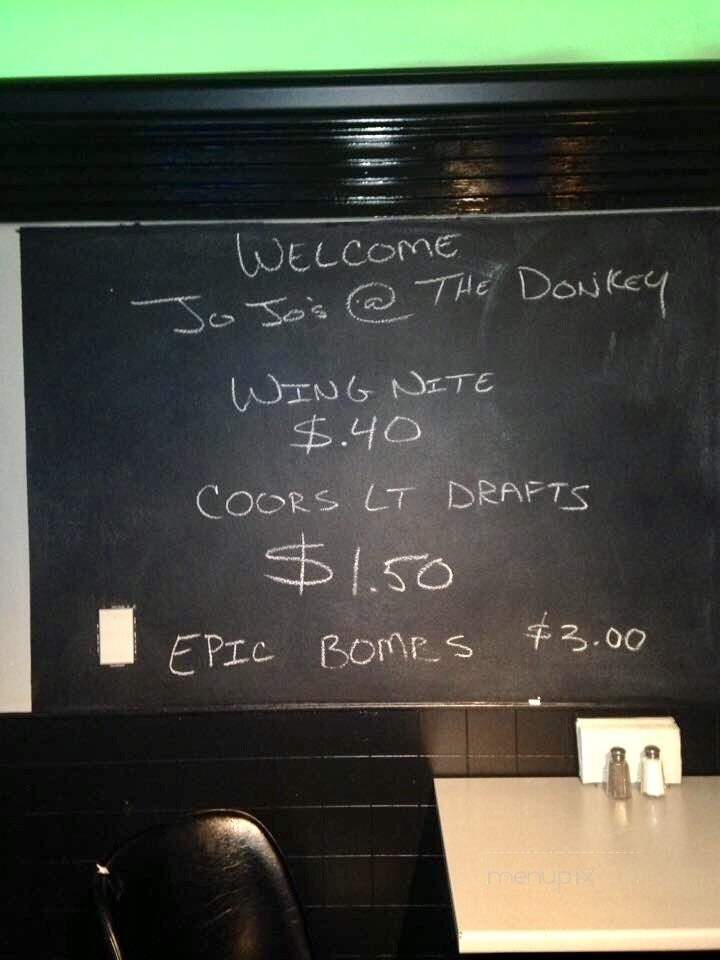 WELCOME
JoJo's @ THE DONKEY
WING NITE
$.40
COORS LT DRAFTS
$1.50
EPIC BOMBS $3.00
menupix